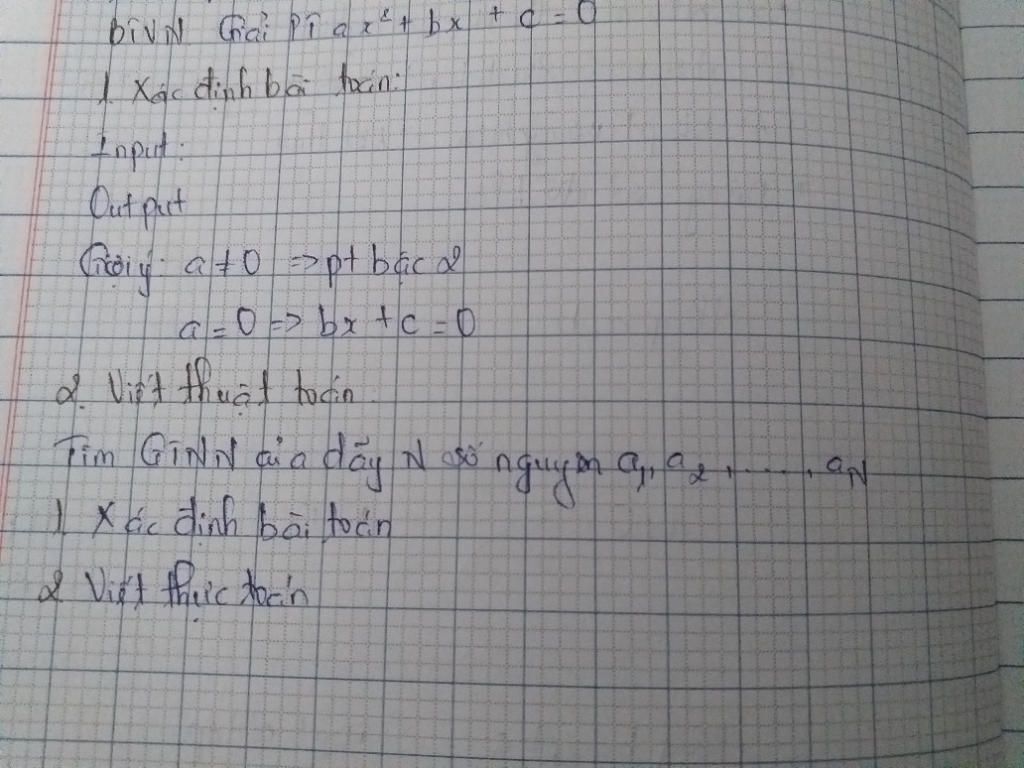 BTVN Giải PT ax² + bx + c = 0
1. Xác định bài toán:
Input:
Output
Gợi ý: a ≠ 0 => pt bậc 2
a = 0 => bx + c = 0
2. Viết thuật toán.
Tìm GTNN của dãy N số nguyên a₁, a₂, ....., aN
1 Xác định bài toán
2 Viết thực toán